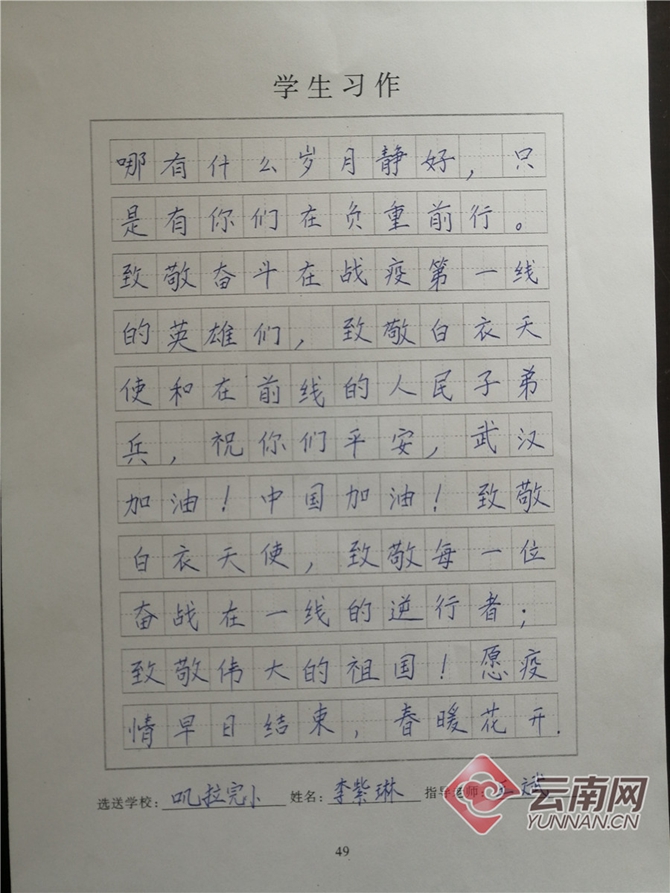 学生习作
哪有什么岁月静好，只
是有你们在负重前行。
致敬奋斗在战疫第一线
的英雄们，致敬白衣天
使和在前线的人民子弟
兵，祝你们平安，武汉
加油！中国加油！致敬
白衣天使，致敬每一位
奋战在一线的逆行者；
致敬伟大的祖国！愿疫
情早日结束，春暖花开.
选送学校：叽拉完小 姓名：李紫琳 指导老师：
云南网
YUNNAN.CN
49